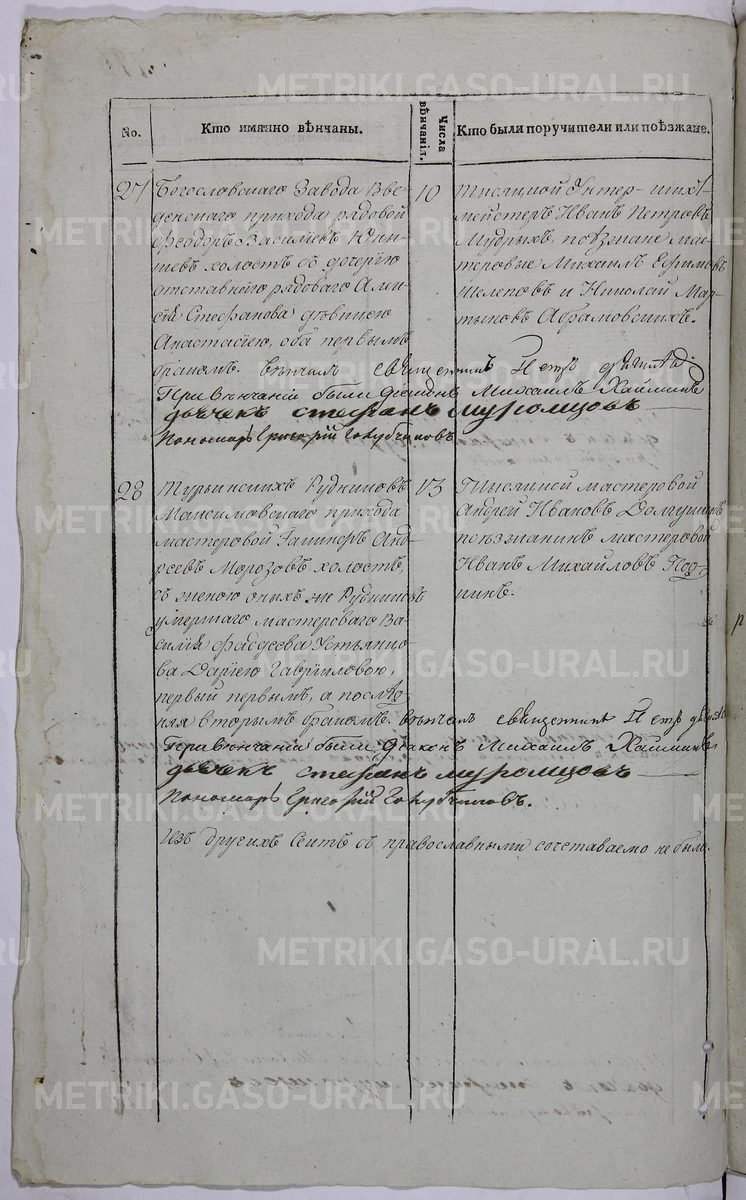 No.
Кто имянно вѣнчаны.
Числа вѣнчанія.
Кто были поручители или поѣзжане.
27
Богословскаго Завода Вве-
денскаго прихода рядовой
Феодоръ Васильевъ
холостъ съ дочерію
отставнаго рядоваго Алек-
сія Стефанова дѣвицею
Анастасіею, оба первымъ
бракомъ. вѣнчалъ священникъ Петръ
При вѣнчаніи были Діаконъ Михаилъ Хайминъ
дьячекъ стефанъ муромцовъ
Пономарь Григорій Голубчиковъ
10
Тысяцкой Унтер-шихт-
мейстеръ Иванъ Петровъ
Мудрыхъ, поѣзжане мас-
теровые Михаилъ Ефимовъ
Шелеповъ и Николай Мар-
тыновъ Абрамовскихъ.
28
Турьинскихъ Рудниковъ
Максимовскаго прихода
мастеровой Анд-
реевъ Морозовъ холостъ,
съ женою оныхъ же Рудниковъ
умершаго мастероваго Ва-
силія Фаддеева Устьянцо-
ва Даріею Гавриловою,
первый первымъ, а послѣд-
няя вторымъ бракомъ. вѣнчалъ священникъ Петръ
При вѣнчаніи были, Діаконъ Михаилъ Хайминъ
дьячекъ стефанъ муромцовъ
Пономарь Григорій Голубчиковъ.
13
Тысяцкой мастеровой
Андрей Ивановъ Долгушинъ
поѣзжанинъ мастеровой
Иванъ Михайловъ
Изъ другихъ Сектъ съ православными сочетаваемо не было.
METRIKI.GASO-URAL.RU